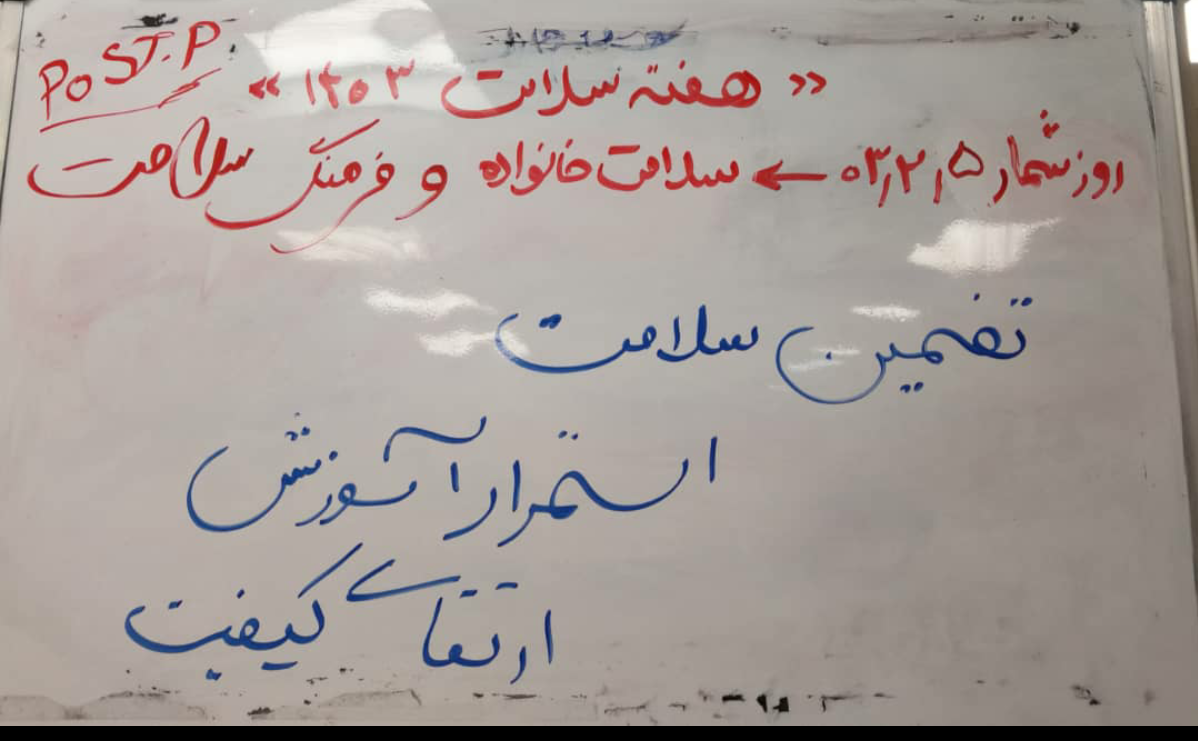 POST.P
« هفته سلامت ۱۴۰۳ »
روزشمار ۰۳,۲,۵ ← سلامت خانواده و فرهنگ سلامت
تضمین سلامت
استمرار آموزش
ارتقای کیفیت